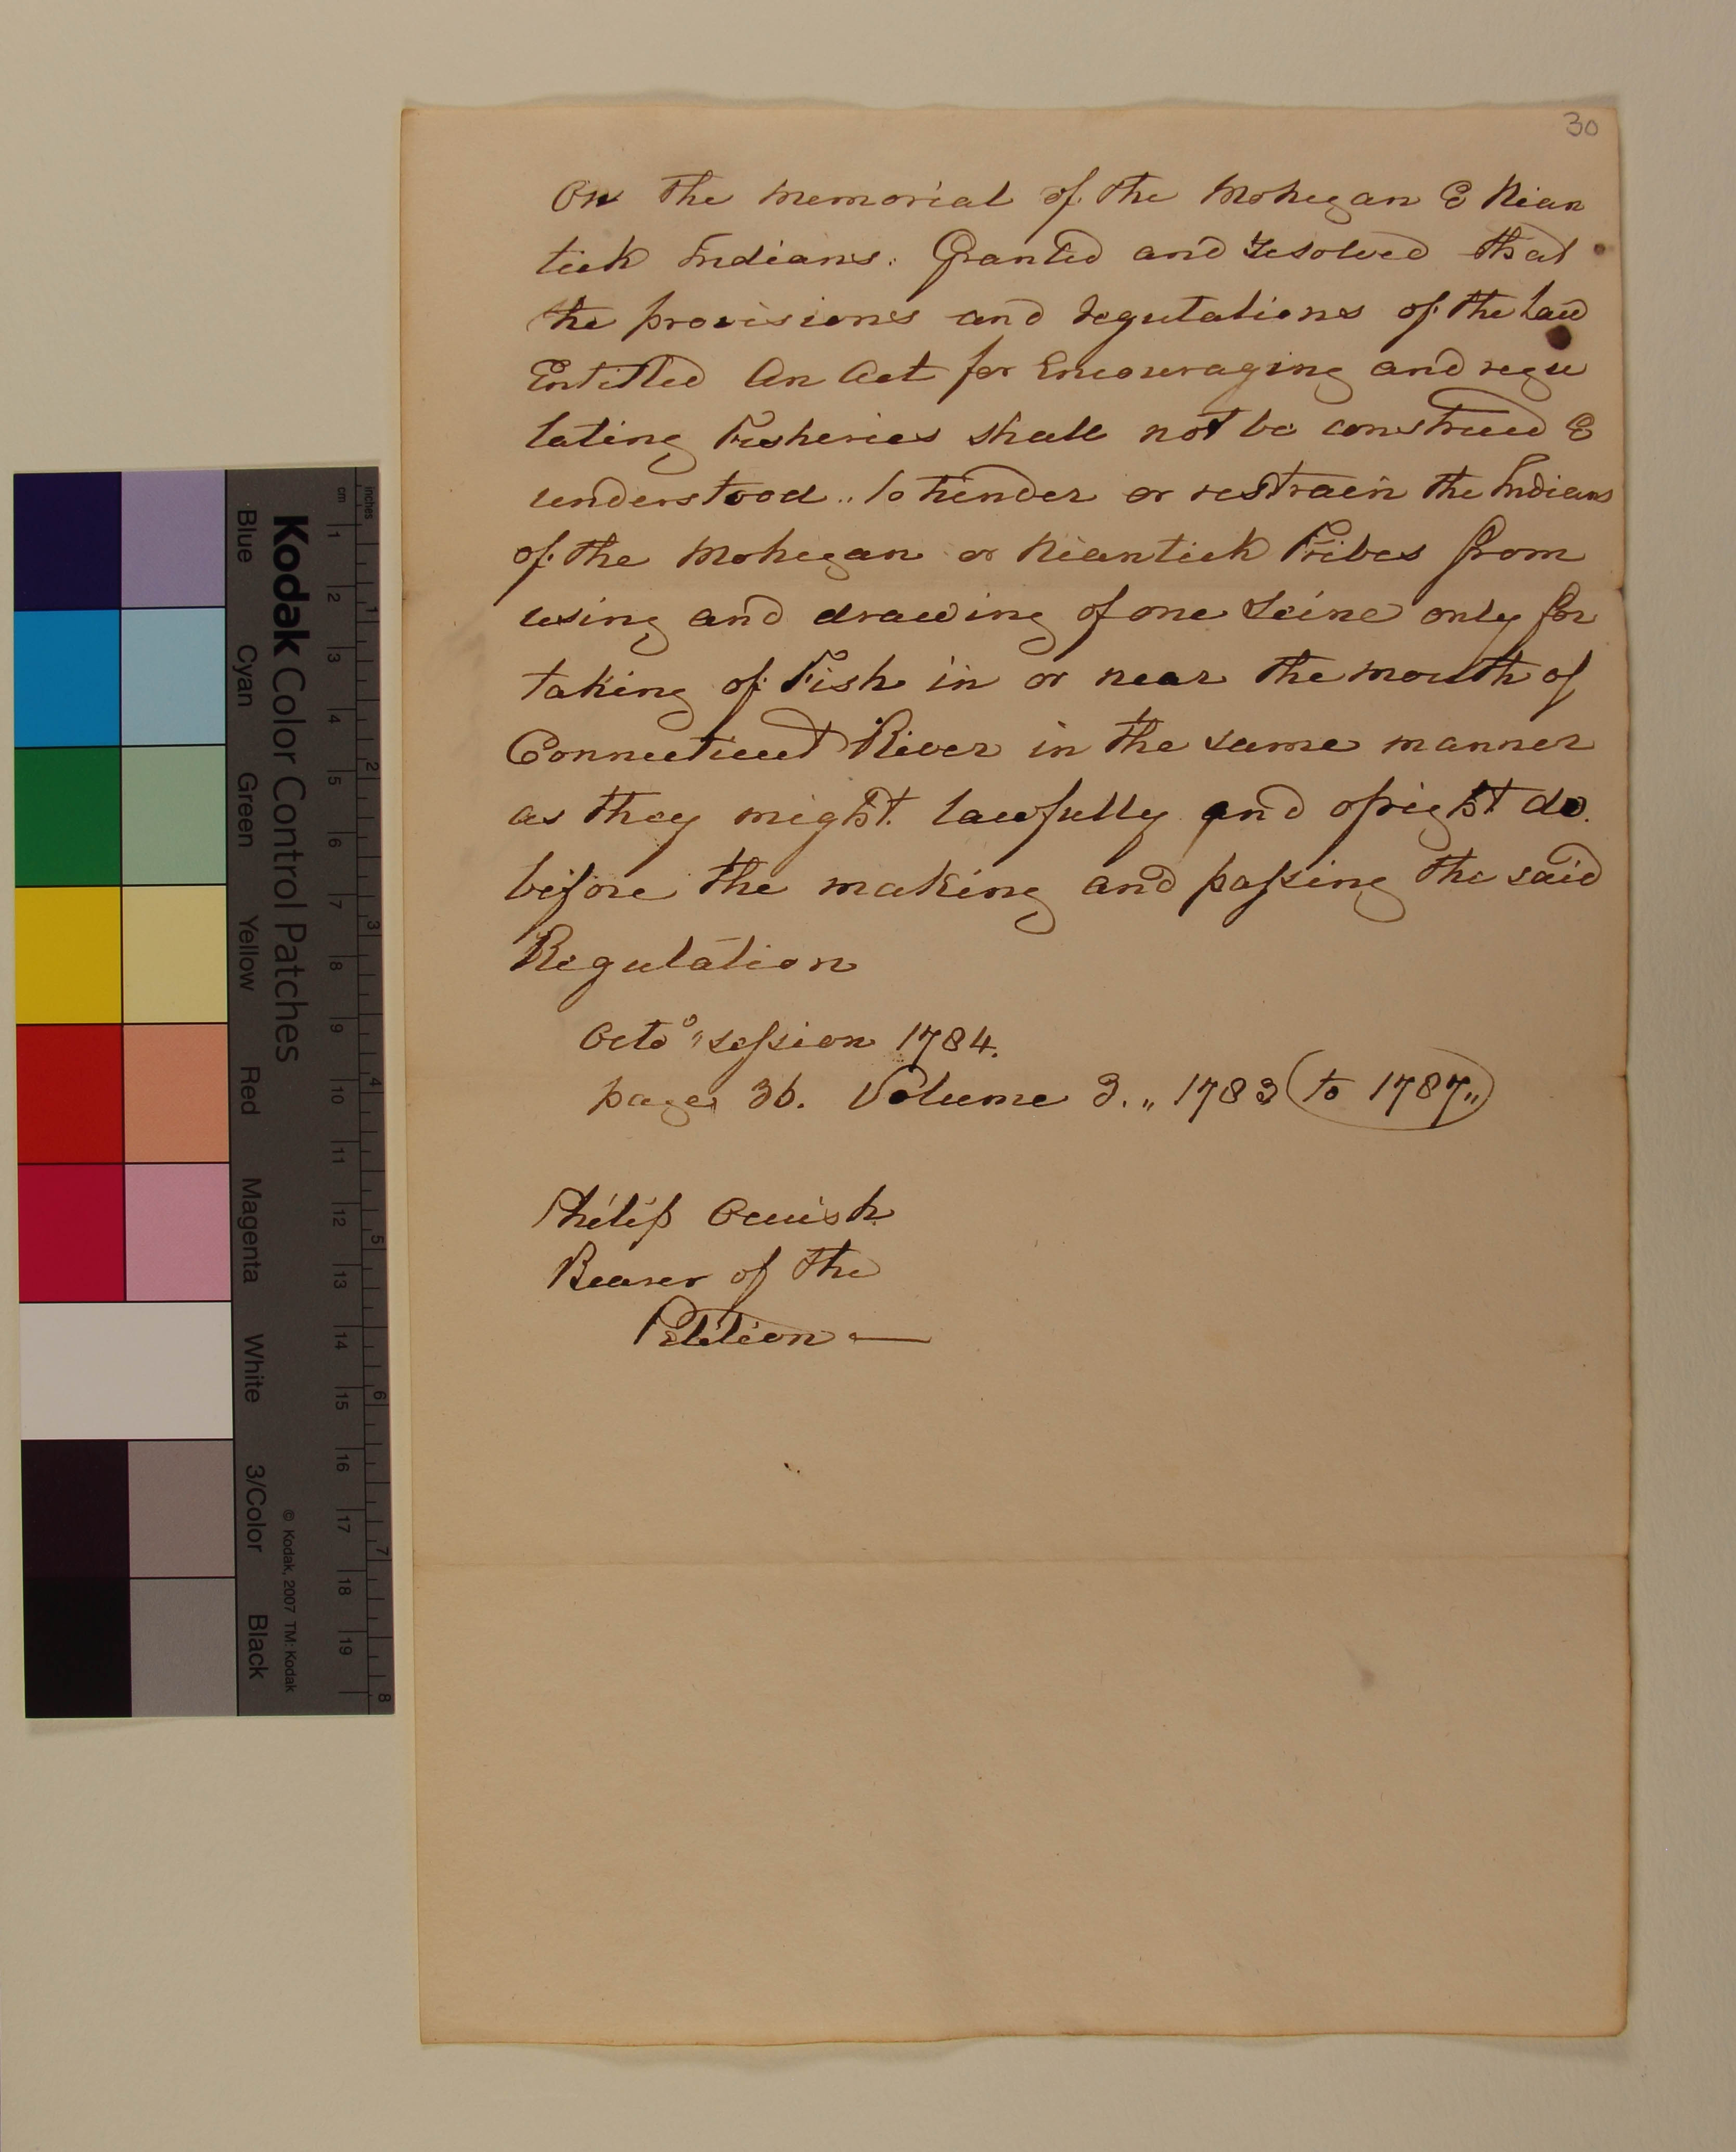 30
On the Memorial of the Mohegan & Nian
tick Indians. Granted and resolved that
the provisions and regulations of the Law
Entitled An Act for Encouraging and regu
lating Fisheries shall not be construed &
understood .. to hinder or restrain the Indians
of the Mohegan or Niantick Tribes from
using and drawing of one Seine only for
taking of Fish in or near the mouth of
Connecticut River in the same manner
as they might lawfully and of right do
before the making and passing the said
Regulation
Octo session 1784.
page 36. Volume 3. „ 1783 (to 1787„)
Philip Occuish
Bearer of the
Petition —
Kodak Color Control Patches
Blue Cyan Green Yellow Red Magenta White 3/Color Black
© Kodak, 2007 TM: Kodak
cm 1 2 3 4 5 6 7 8 9 10 11 12 13 14 15 16 17 18 19
inches 1 2 3 4 5 6 7 8